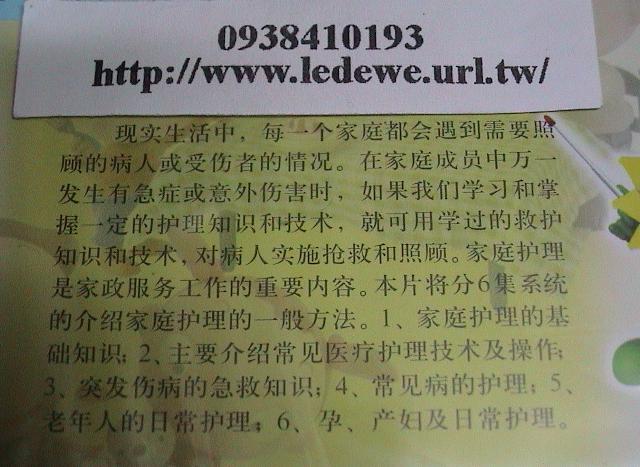 0938410193
http://www.ledewe.url.tw/
现实生活中，每一个家庭都会遇到需要照
顾的病人或受伤者的情况。在家庭成员中万一
发生有急症或意外伤害时，如果我们学习和掌
握一定的护理知识和技术，就可用学过的救护
知识和技术，对病人实施抢救和照顾。家庭护理
是家政服务工作的重要内容。本片将分6集系统
的介绍家庭护理的一般方法。1、家庭护理的基
础知识；2、主要介绍常见医疗护理技术及操作；
3、突发伤病的急救知识；4、常见病的护理；5、
老年人的日常护理；6、孕、产妇及日常护理。